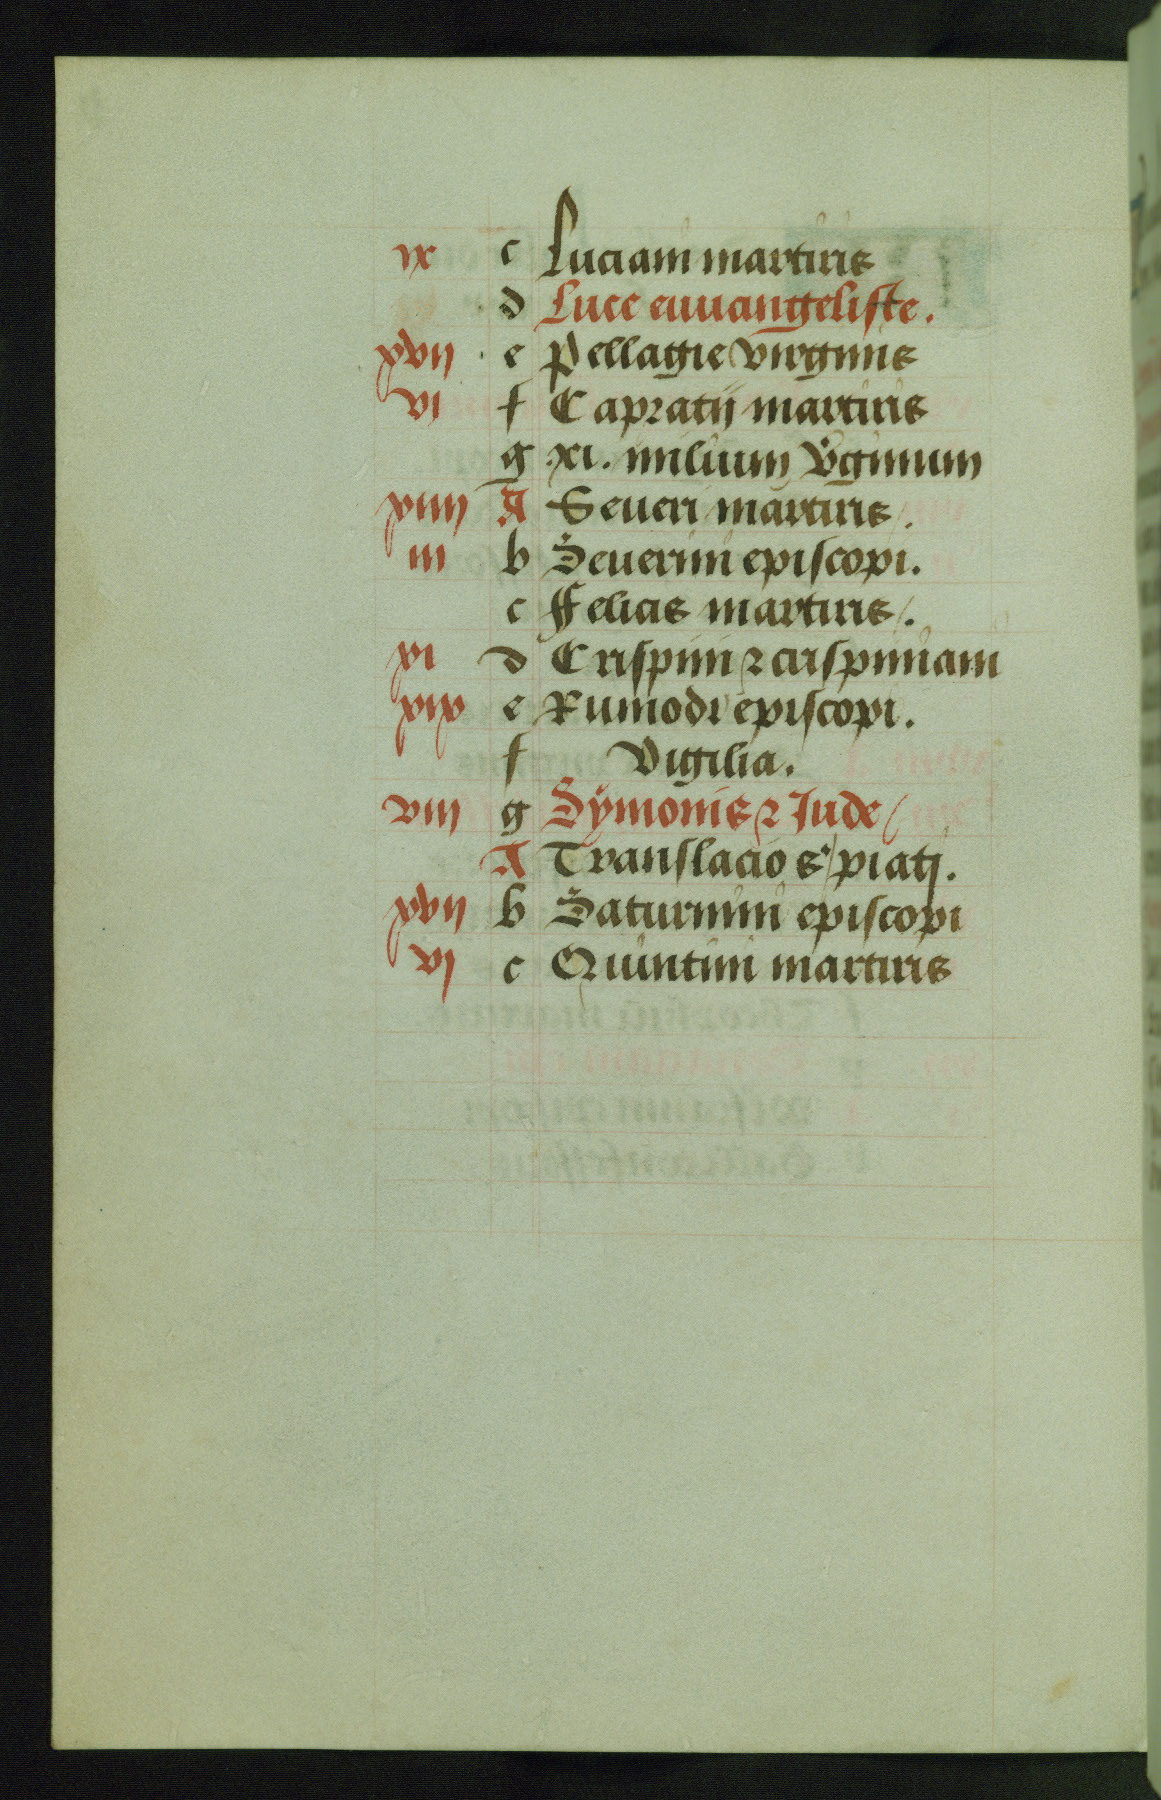 ix c Luciani martiris
d Luce euuangeliste.
xvii e Pellagie virginis
vi f Capratij martiris
g xi. milium v̾ginum
xiiii A Seueri martiris.
iii b Seuerini episcopi.
c Felicis martiris.
xi d Crispini ꝛ crispiniani
xix e Rumodi episcopi.
f Vigilia.
viii g Sÿmonis ꝛ Jude
A Translacio s' piati.
xvii b Saturnini episcopi
vi c Quintini martiris